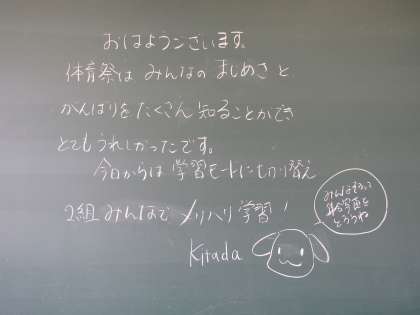 おはようございます。
体育祭は みんなの まじめさ と
がんばりを たくさん 知ることができ
とてもうれしかったです。
今日からは 学習モードに切り替え
2組 みんなで メリハリ 学習!
Kitada
みんなで
集合写真を
とろうね